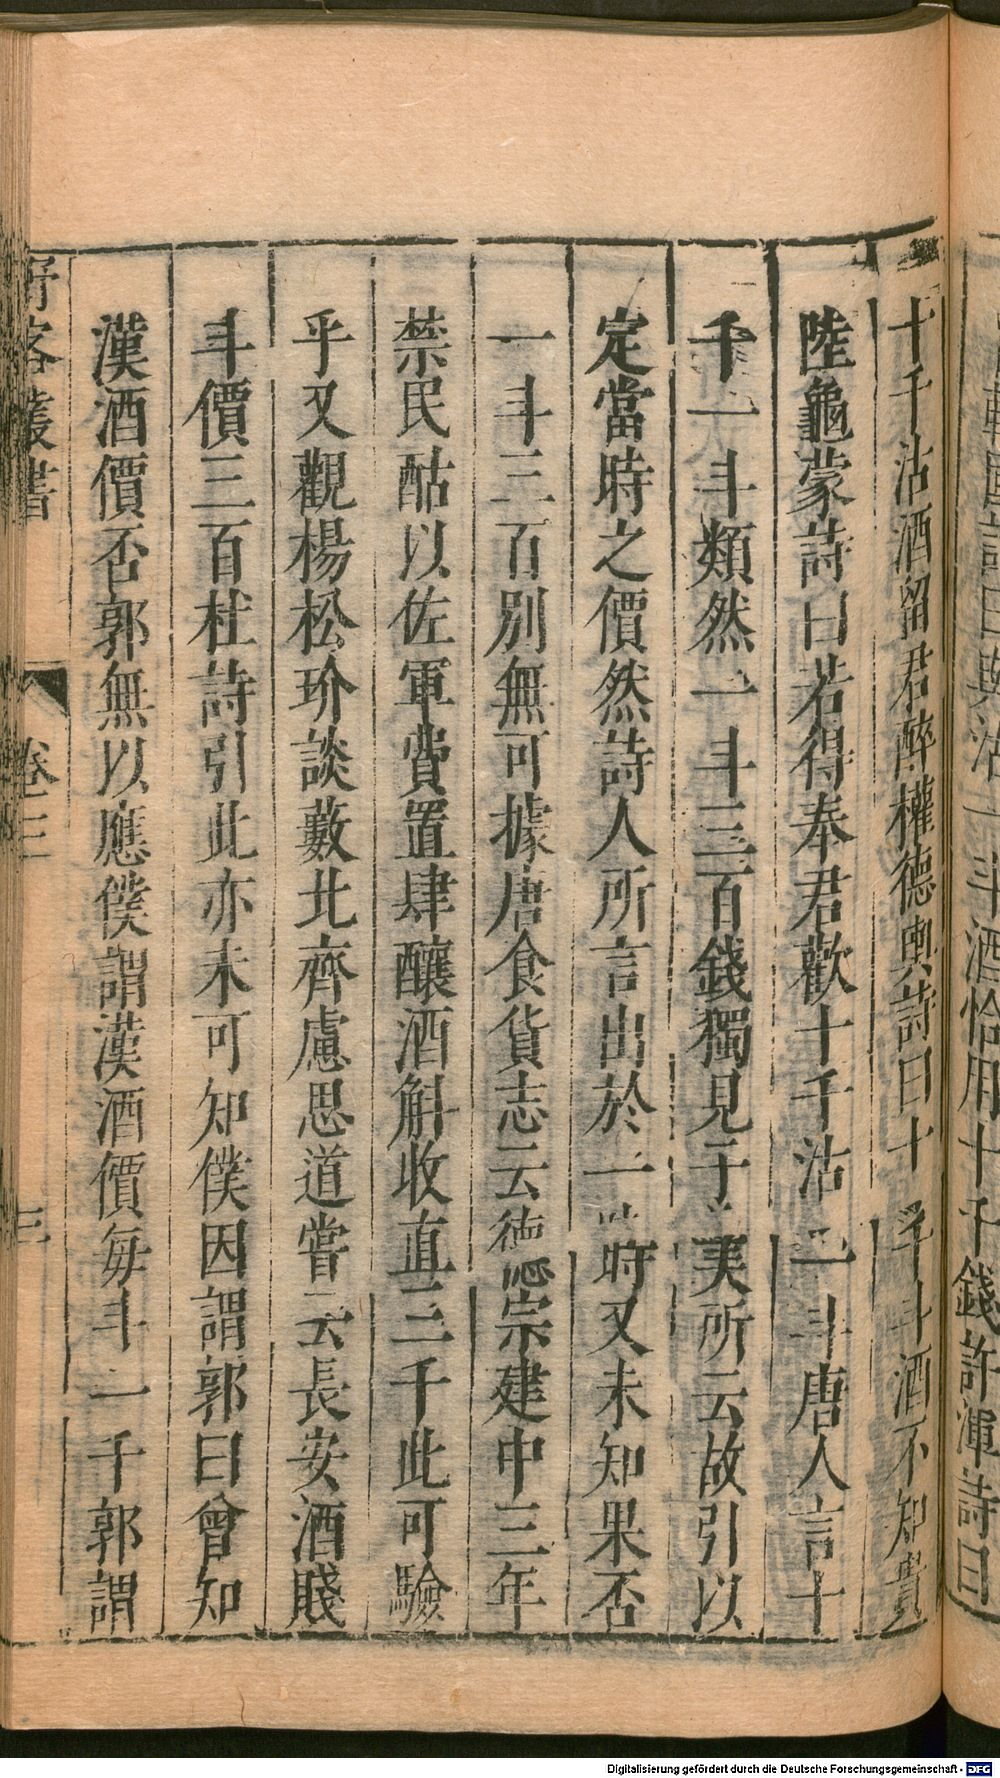 曰輿沽一斗酒恰用十千錢許渾詩曰
十千沽酒留君醉權德輿詩曰十千斗酒不知貴
陸龜蒙詩曰若得奉君歡十千沽一斗唐人言十
千一斗類然一斗三百錢獨見于美所云故引以
定當時之價然詩人所言出於一時又未知果否
一斗三百別無可據唐食貨志云德宗建中三年
禁民酤以佐軍費置肆釀酒斛收直三千此可驗
乎又觀楊松玠談藪北齊盧思道嘗云長安酒賤
斗價三百杜詩引此亦未可知僕因謂郭曰曾知
漢酒價否郭無以應僕謂漢酒價每斗一千郭謂
野客叢書 卷三 三
Digitalisierung gefördert durch die Deutsche Forschungsgemeinschaft - DFG